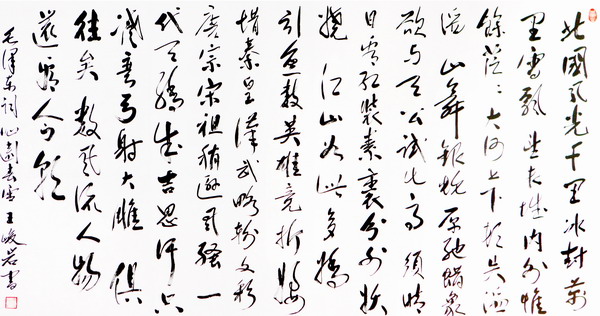 北國風光千里冰封萬
里雪飄望長城內外惟
餘莽々大河上下頓失滔
滔山舞銀蛇原馳蠟象
欲与天公試比高須晴
日看紅裝素裹分外妖
嬈江山如此多嬌
引無數英雄競折腰
惜秦皇漢武略輸文彩
唐宗宋祖稍遜風騷一
代天驕成吉思汗只
識彎弓射大雕俱
往矣数風流人物
還看今朝
毛澤東詞沁園春雪王峻岩書